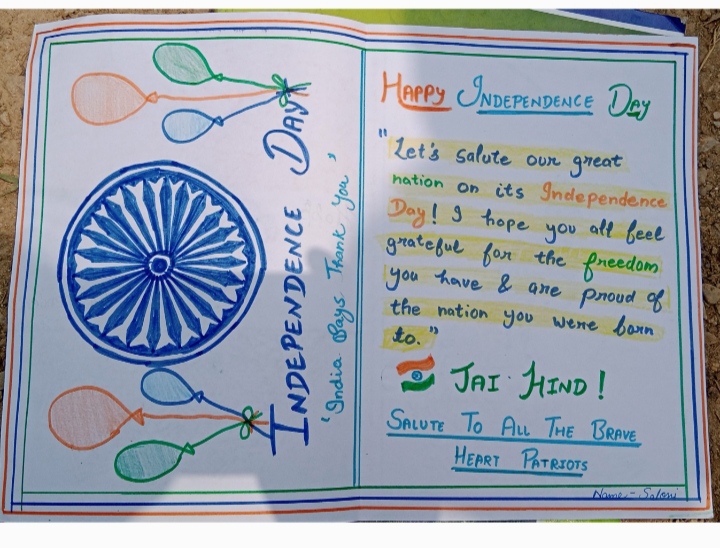 INDEPENDENCE DAY
'India Says Thank You'
HAPPY INDEPENDENCE DAY
"Let's salute our great
nation on its Independence
Day! I hope you all feel
grateful for the freedom
you have & are proud of
the nation you were born
to."
JAI HIND!
SALUTE TO ALL THE BRAVE
HEART PATRIOTS
Name - Saloni